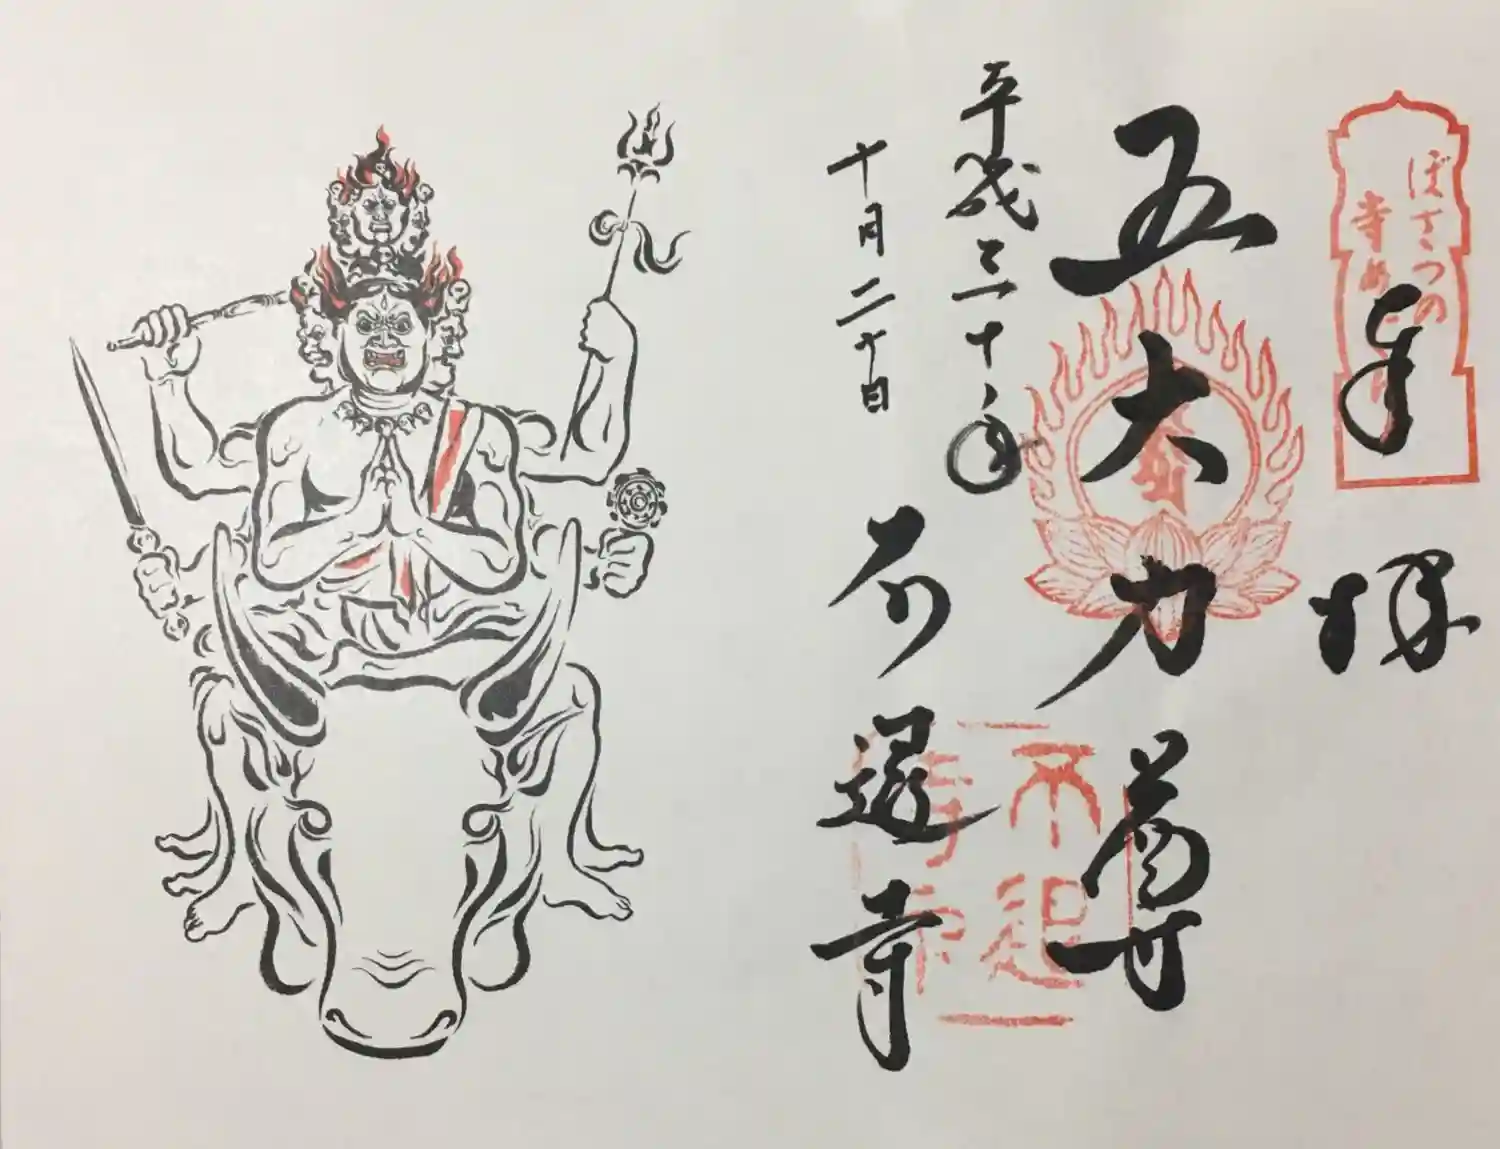 奉拝
ぼさつの
寺め
五大力尊
平成三十年
十月二十日
不退寺
不退